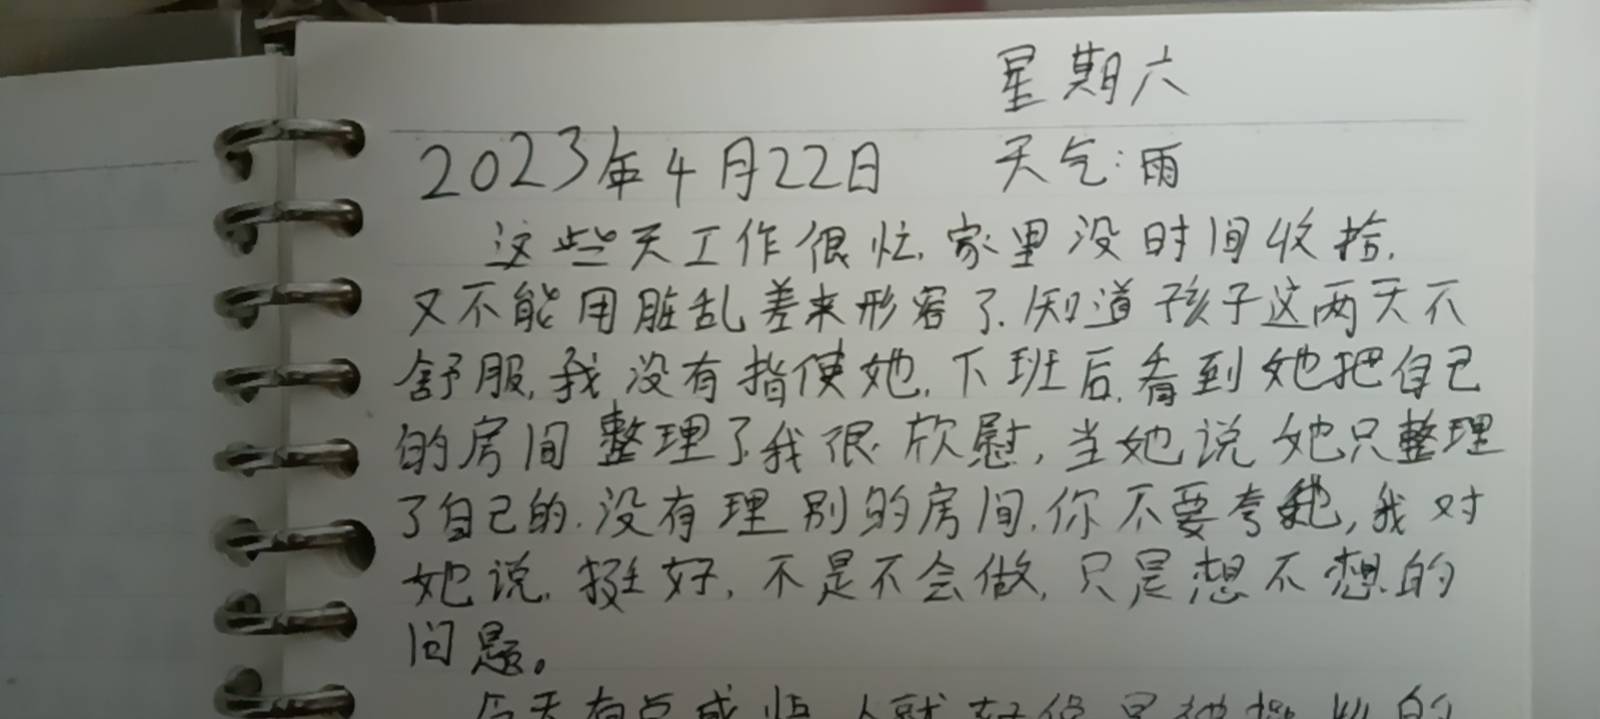 星期六
2023年4月22日 天气:雨
这些天工作很忙,家里没时间收拾,
又不能用脏乱差来形容了.知道孩子这两天不
舒服,我没有指使她,下班后,看到她把自己
的房间整理了,我很欣慰,当她说她只整理
了自己的.没有理别的房间.你不要夸她,我对
她说,挺好,不是不会做,只是想不想的
问题。
今天有点感悟,人就好像是被